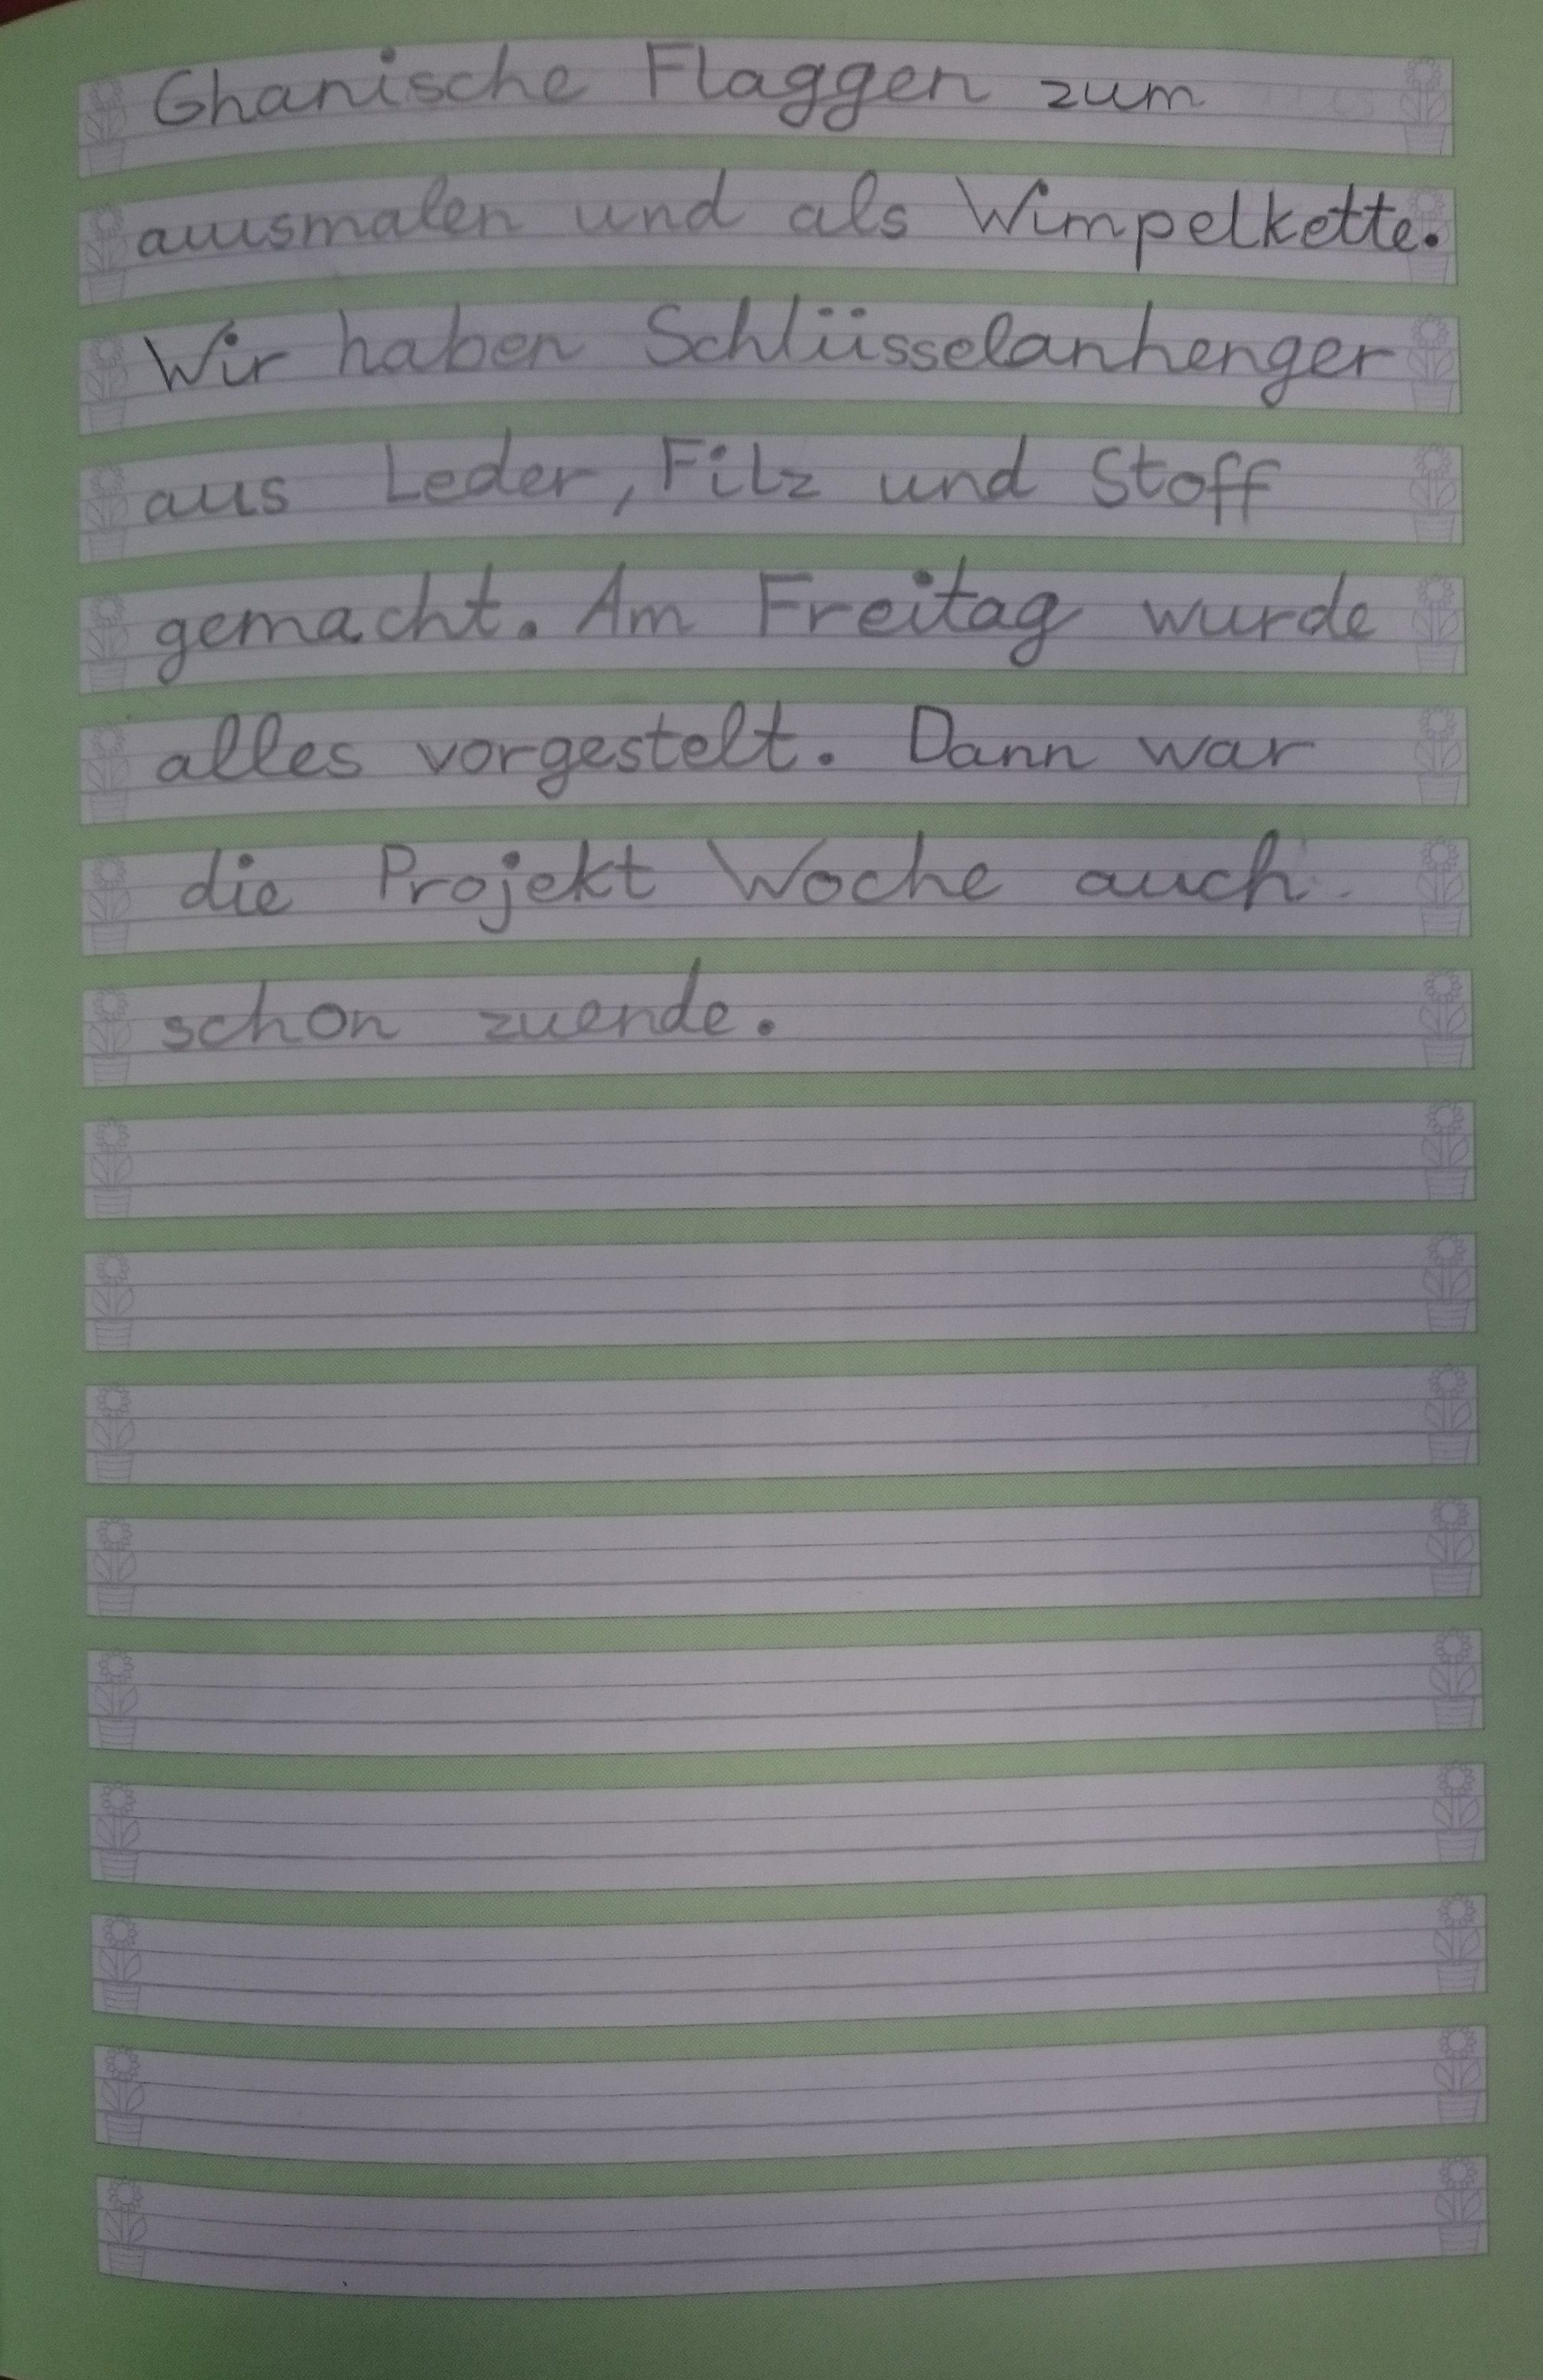 Ghanische Flaggen zum
ausmalen und als Wimpelkette.
Wir haben Schlüsselanhenger
aus Leder, Filz und Stoff
gemacht. Am Freitag wurde
alles vorgestelt. Dann war
die Projekt Woche auch
schon zuende.